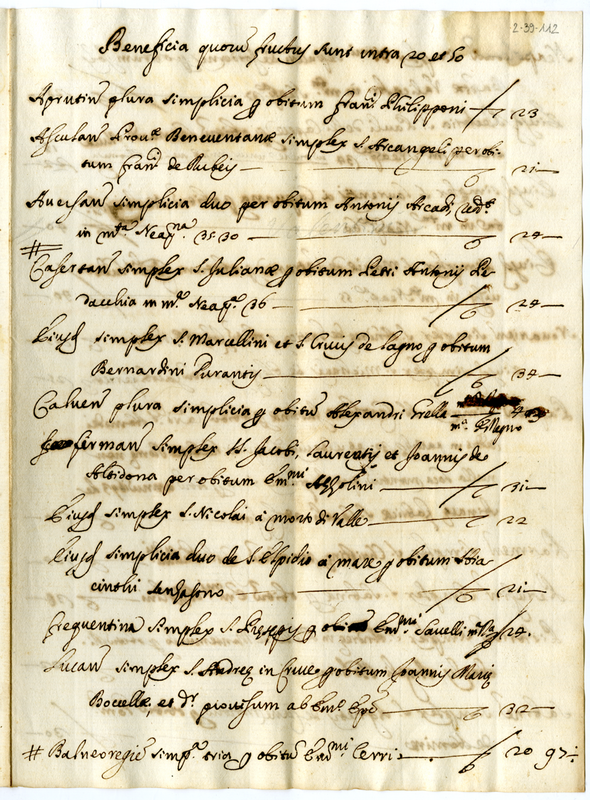 2·39·112
Beneficia quoru fructus sunt intra 20 et 50
Aprutin plura simplicia p obitum Fran.ci Philipponi 23
Asculan Prou.ae Beneuentanae simplex S. Arcangeli per obi-
tum Fran.ci de Rubeis 6 21
Auersan simplicia duo per obitum Antonij
in m.ta Neap.na 35:30 6 24
# Casertan simplex S. Julianae p obitum Petri Antonij De
in m.ta Neap. 36 6 24
Eiusd simplex S. Marcellini et S. Crucis de Lagno p obitum
Bernardini Durantis 6 34
Caluen plura simplicia p obitu Alexandri
Firman simplex SS. Jacobi, Laurentij et Joannis de
Altidona per obitum Em.mi Azzolini 31
Eiusd simplex S. Nicolai à morto di Valle 22
Eiusd simplicia duo de S. Elpidio à mare p obitum Hia
cinthi 6 21
Frequentina simplex S. p obitu Em.mi Sauelli 24.
Lucan simplex S. Andreę in Cruce p obitum Joannis Marię
Bocellae, et d.r prouisum ab Em.o Epõ 6 32
# Balneoregie simp.a tria p obitu Em.mi Cerri 6 20 97: